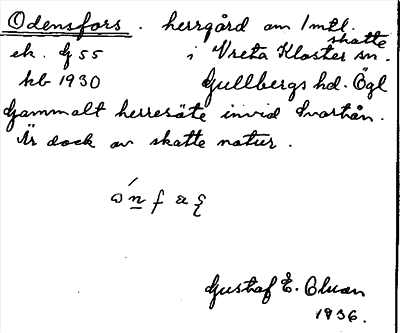 Odensfors. herrgård om 1 mtl.
skatte
ek. G 55 i Vreta Kloster sn.
kb 1930 Gullbergs hd. Ögl
Gammalt herresäte invid Svartån.
Är dock av skatte natur.
Gustaf E. Cluan
1936.